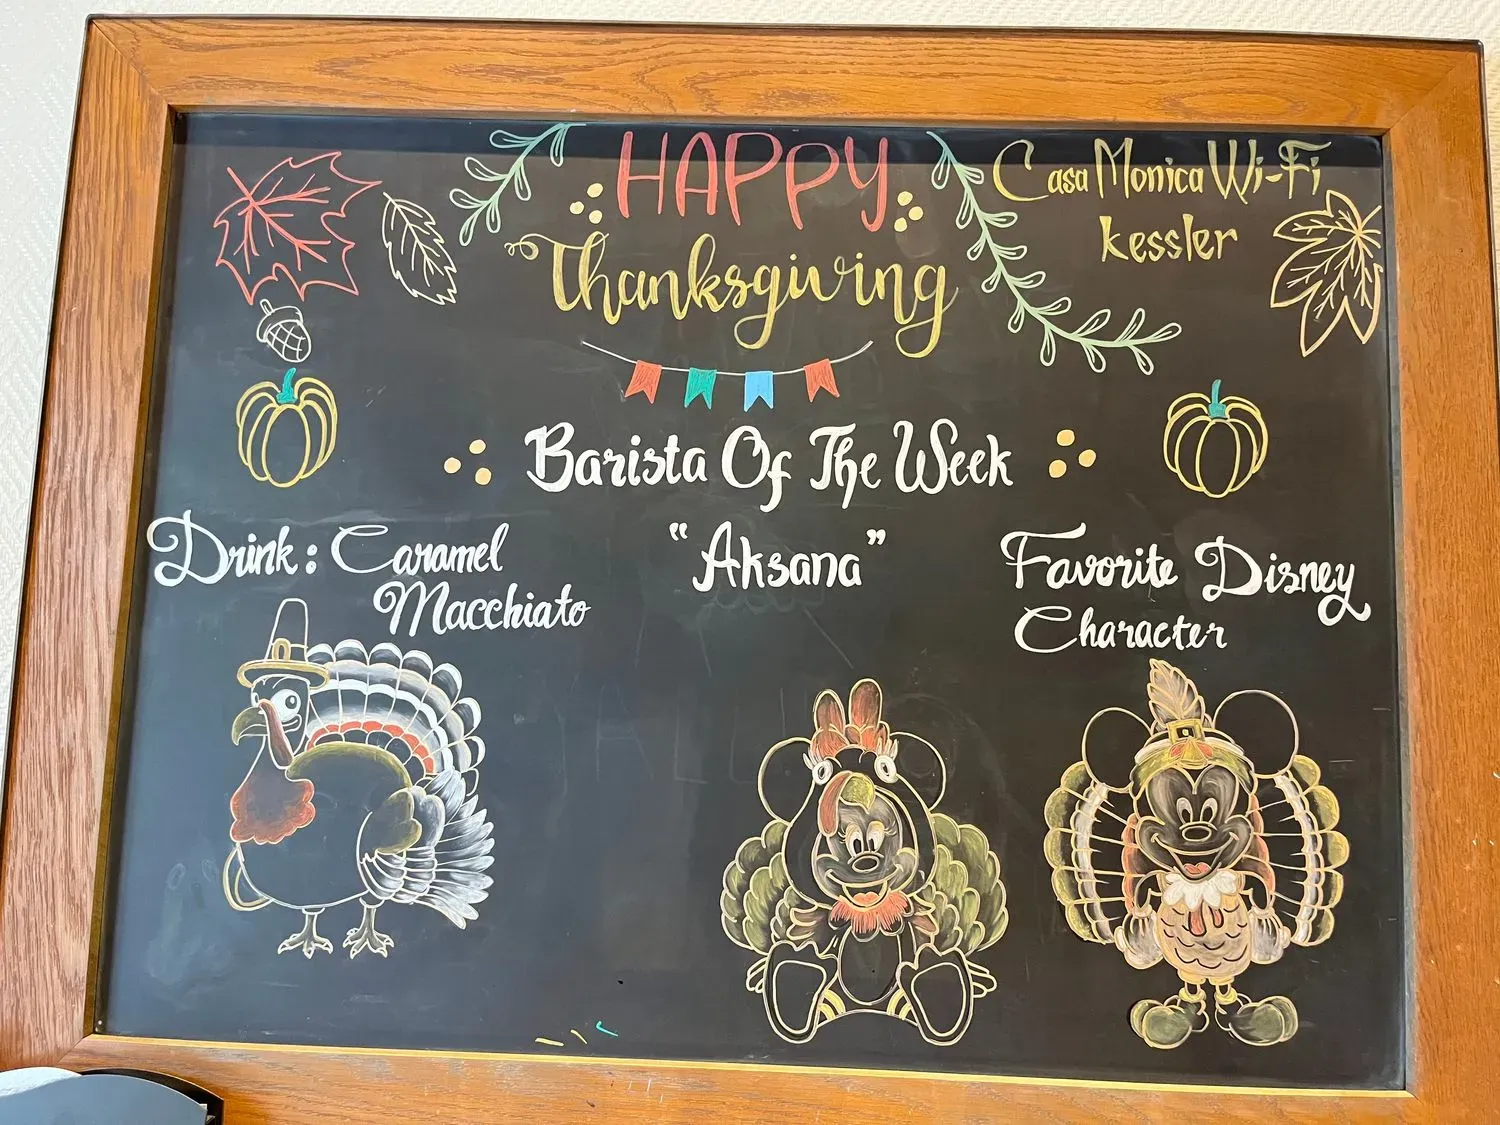 HAPPY
Thanksgiving
Casa Monica Wi-Fi
kessler
Barista Of The Week
"Aksana"
Drink: Caramel
Macchiato
Favorite Disney
Character